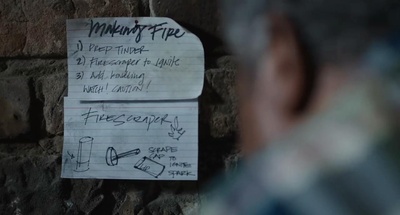 Making Fire
1) PREP TINDER
2) Firescraper to Ignite
3) Add kindling
WATCH! CAUTION!
FIRESCRAPER
SCRAPE
TO
IGNITE
SPARK